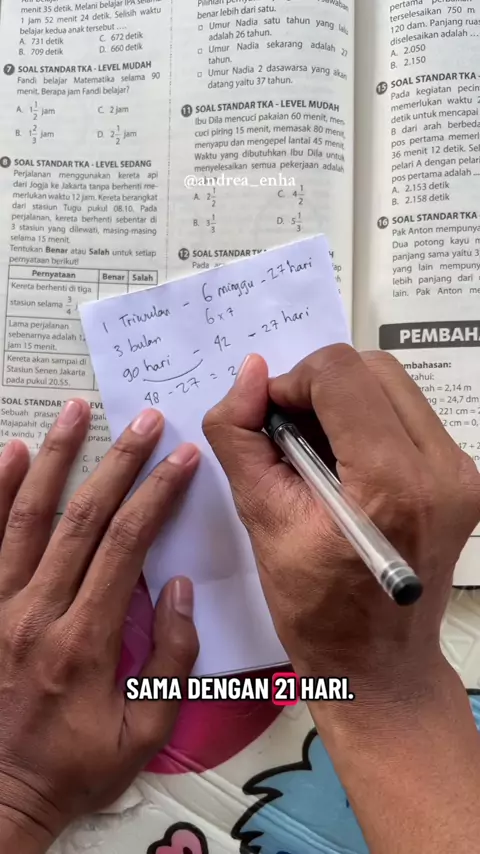 menit 35 detik. Melani belajar IPA selama
1 jam 52 menit 24 detik. Selisih waktu
belajar kedua anak tersebut ....
A. 731 detik C. 672 detik
B. 709 detik D. 660 detik
7 SOAL STANDAR TKA - LEVEL MUDAH
Fandi belajar Matematika selama 90
menit. Berapa jam Fandi belajar?
A. 1 1/2 jam C. 2 jam
B. 1 2/3 jam D. 2 1/2 jam
8 SOAL STANDAR TKA - LEVEL SEDANG
Perjalanan menggunakan kereta api
dari Jogja ke Jakarta tanpa berhenti me-
merlukan waktu 12 jam. Kereta berangkat
dari stasiun Tugu pukul 08.10. Pada
perjalanan, kereta berhenti sebentar di
3 stasiun yang dilewati, masing-masing
selama 15 menit.
Tentukan Benar atau Salah untuk setiap
pernyataan berikut!
Pernyataan Benar Salah
Kereta berhenti di tiga
stasiun selama 3/4
Lama perjalanan
sebenarnya adalah 12
jam 15 menit.
Kereta akan sampai di
Stasiun Senen Jakarta
pada pukul 20.55.
SOAL STANDAR LEVEL
Sebuah prasas
Majapahit dip
14 windu 7
prasas
C. 8
D.
benar lebih dari satu.
Umur Nadia satu tahun yang lalu
adalah 26 tahun.
Umur Nadia sekarang adalah 27
tahun.
Umur Nadia 2 dasawarsa yang akan
datang yaitu 37 tahun.
11 SOAL STANDAR TKA - LEVEL MUDAH
Ibu Dila mencuci pakaian 60 menit, men-
cuci piring 15 menit, memasak 80 menit,
menyapu dan mengepel lantai 45 menit.
Waktu yang dibutuhkan Ibu Dila untuk
menyelesaikan semua pekerjaan adalah
@andrea_enha
A. 2 1/2 C. 4 1/2
B. 3 1/3 D. 5 1/3
12 SOAL STANDAR
Pada
1 Triwulan - 6 minggu - 27 hari
3 bulan 6 x 7
90 hari - 42 - 27 hari
48 - 27 = 2
pertama
terselesaikan 750 m
120 dam. Panjang ruas
diselesaikan adalah ...
A. 2.050
B. 2.150
15 SOAL STANDAR TKA -
Pada kegiatan pecin
memerlukan waktu 2
detik untuk mencapai
B dari arah berbeda
pos pertama memer
36 menit 12 detik. Sel
pelari A dengan pelari
pos pertama adalah ...
A. 2.153 detik
B. 2.158 detik
16 SOAL STANDAR TKA
Pak Anton mempunya
Dua potong kayu m
panjang sama yaitu 3
yang lain mempuny
lebih panjang dari
lain. Pak Anton me
PEMBAH
mbahasan:
tahui:
= 2,14 m
= 24,7 dm
221 cm = 2
2 cm = 0,
SAMA DENGAN 21 HARI.